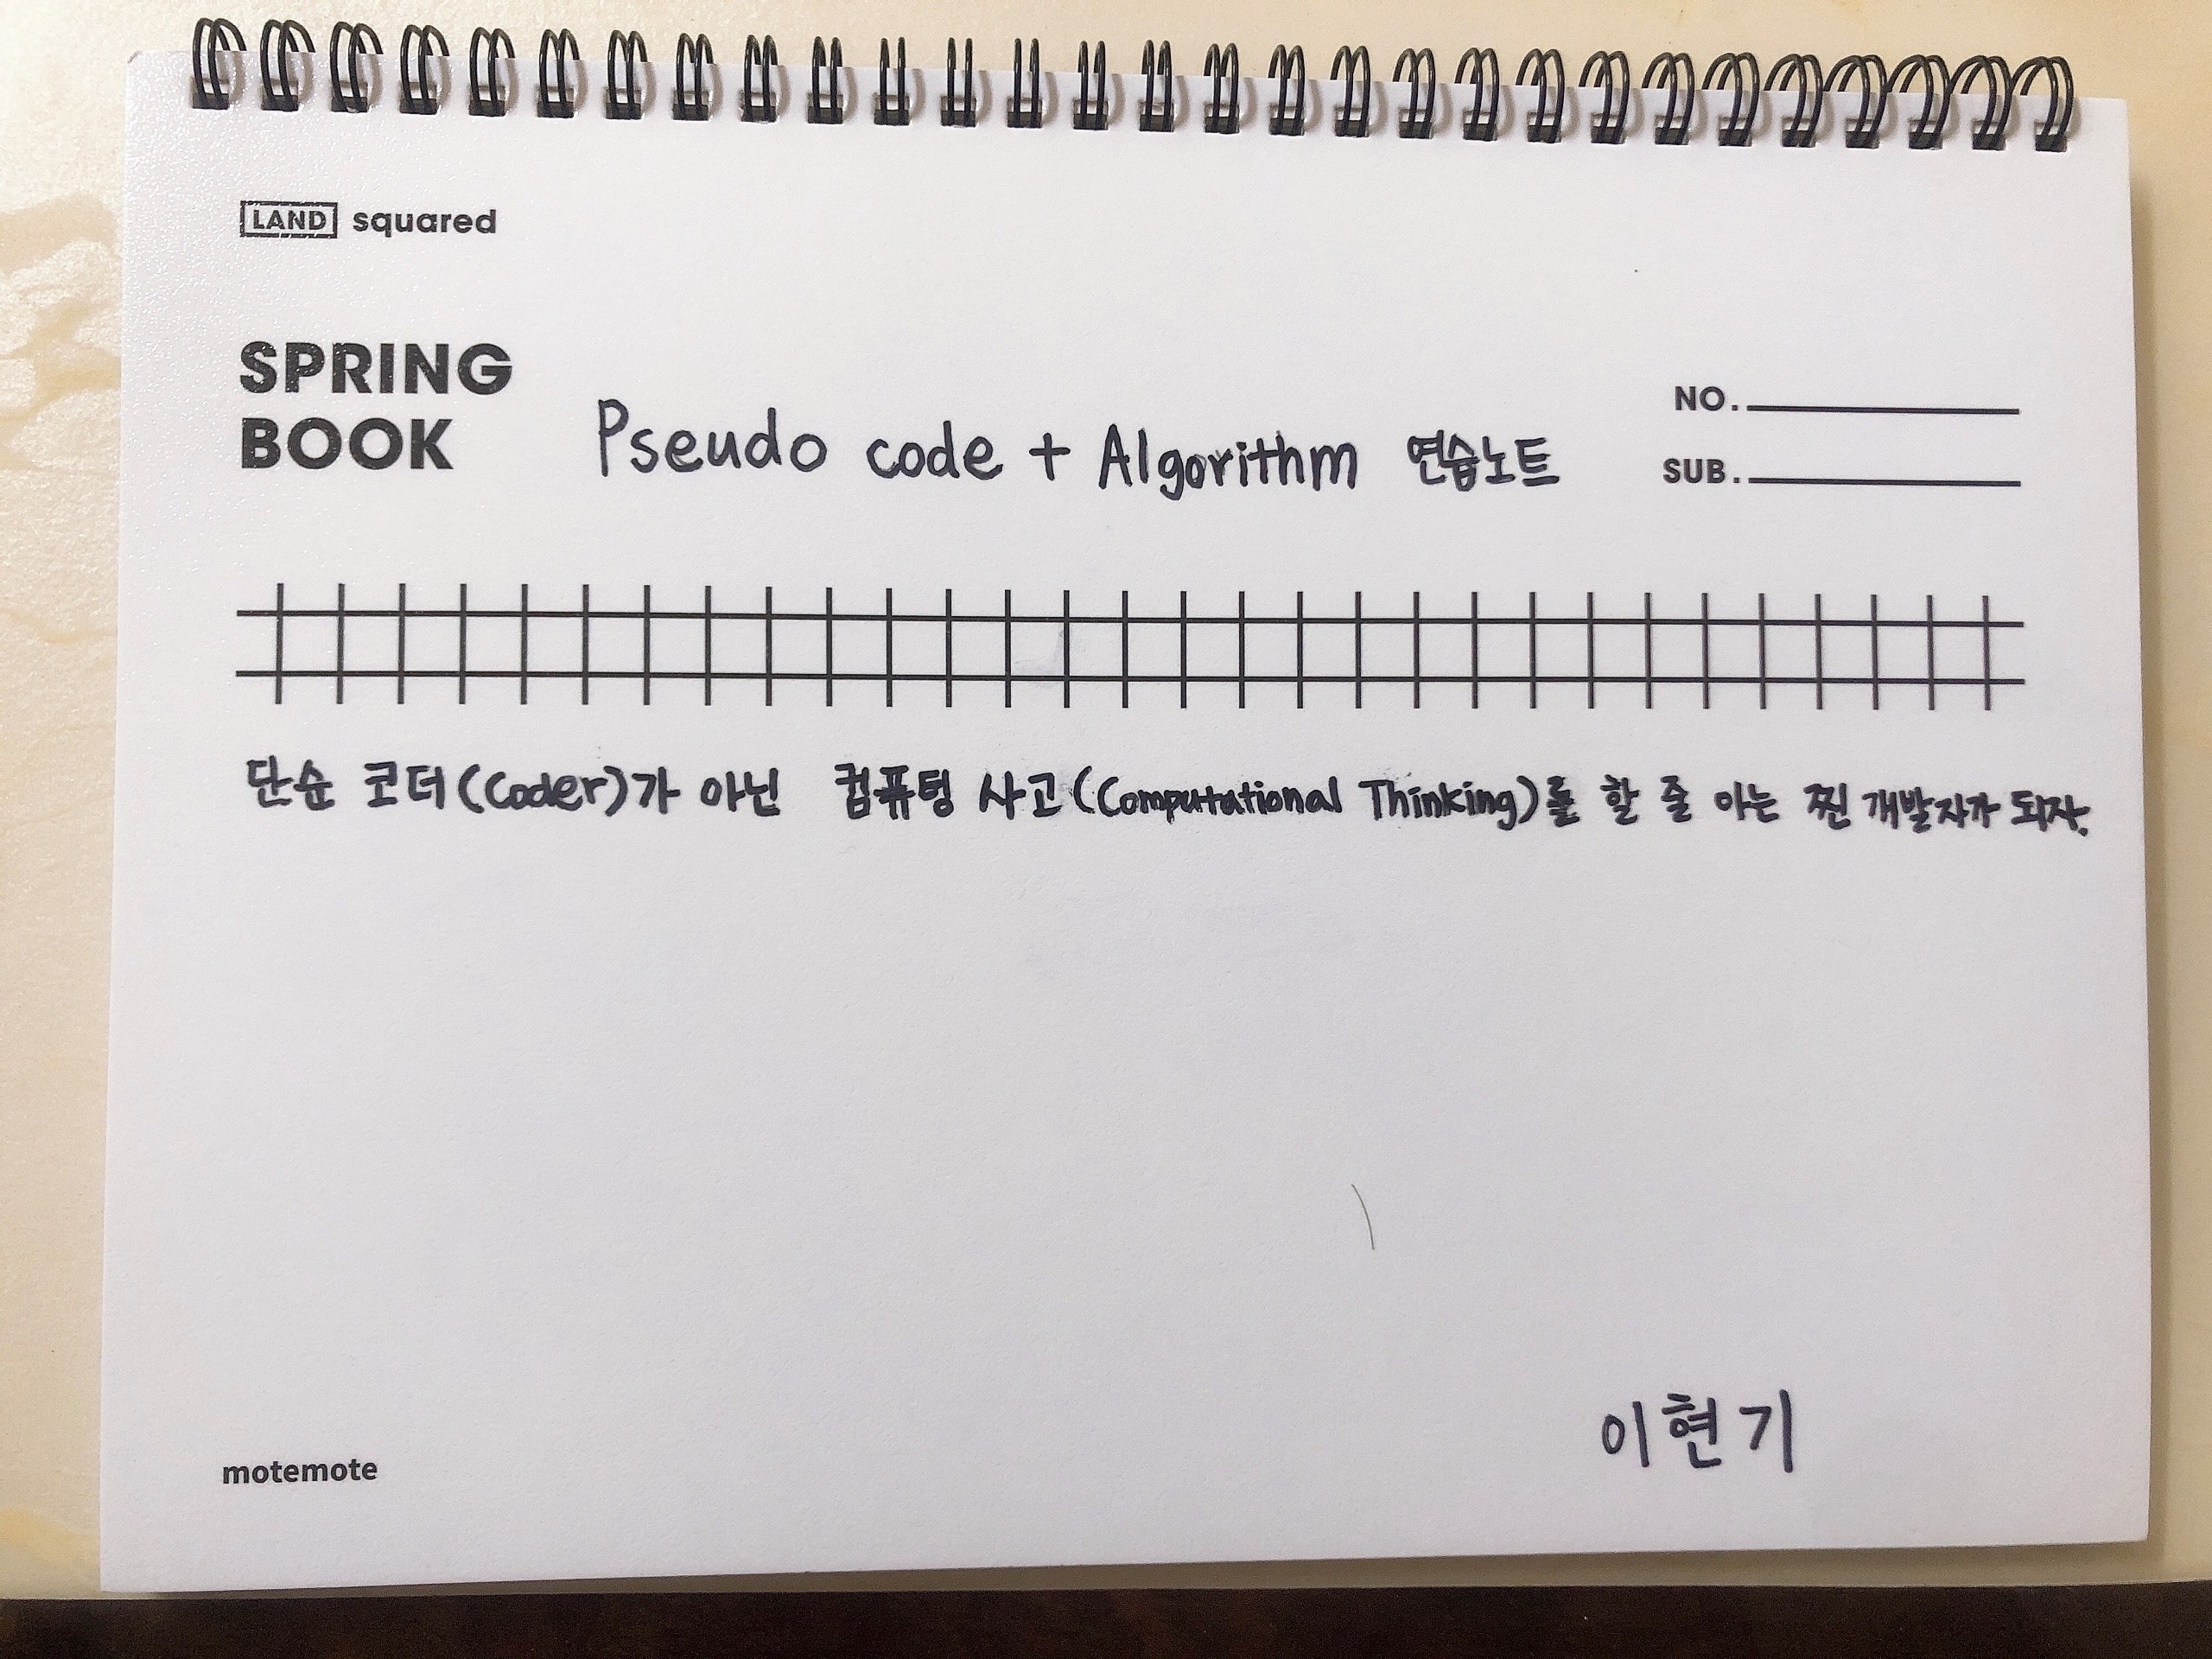 LAND squared
SPRING
BOOK
Pseudo code + Algorithm 연습노트
NO.
SUB.
단순 코더(Coder)가 아닌 컴퓨팅 사고(Computational Thinking)를 할 줄 아는 찐 개발자가 되자.
이현기
motemote